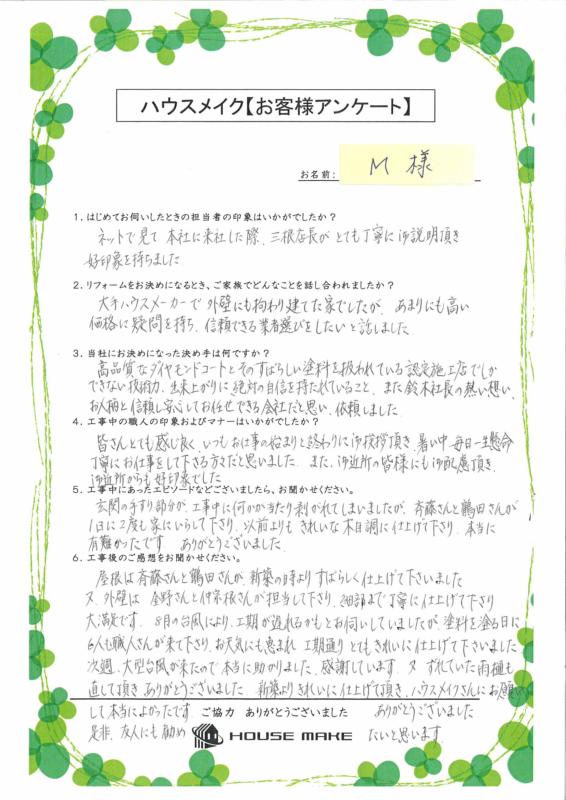 ハウスメイク【お客様アンケート】
お名前: M 様
1. はじめてお伺いしたときの担当者の印象はいかがでしたか？
ネットで見て 本社に来社した際、三根店長が とても丁寧に御説明頂き
好印象を持ちました
2. リフォームをお決めになるとき、ご家族でどんなことを話し合われましたか？
大手ハウスメーカーで 外壁にも拘わり建てた家でしたが、あまりにも高い
価格に疑問を持ち、信頼できる業者選びをしたいと話しました
3. 当社にお決めになった決め手は何ですか？
高品質なダイヤモンドコートとそのすばらしい塗料を扱われている認定施工店でしか
できない技術力、出来上がりに絶対の自信を持たれていること、また鈴木社長の熱い想い、
お人柄と信頼し安心してお任せできる会社だと思い、依頼しました
4. 工事中の職人の印象およびマナーはいかがでしたか？
皆さんとても感じ良く、いつもお仕事の始まりと終わりに御挨拶頂き、暑い中 毎日一生懸命
丁寧にお仕事をして下さる方々だと思いました。また、御近所の皆様にも御配慮頂き、
御近所からも好印象でした
5. 工事中にあったエピソードなどございましたら、お聞かせください。
玄関の手すり部分が、工事中に何かが当たり剥がれてしまいましたが、斉藤さんと鶴田さんが
1日に2度も家にいらして下さり、以前よりも きれいな木目調に仕上げて下さり、本当に
有難かったです ありがとうございました
6. 工事後のご感想をお聞かせください。
屋根は斉藤さんと鶴田さんが、新築の時よりすばらしく仕上げて下さいました
又、外壁は 金野さんと伊宗根さんが担当して下さり、細部まで丁寧に仕上げて下さり
大満足です。8月の台風により、工期が遅れるかもとお伺いしていましたが、塗料を塗る日に
6人も職人さんが来て下さり、お天気にも恵まれ 工期通り とてもきれいに仕上げて下さいました
次週、大型台風が来たので本当に助かりました。感謝しています。又 ずれていた雨樋も
直して頂き ありがとうございました。新築よりきれいに仕上げて頂き、ハウスメイクさんにお願い
して本当によかったです。 ご協力 ありがとうございました ありがとうございました
是非、友人にも勧め HOUSE MAKE たいと思います